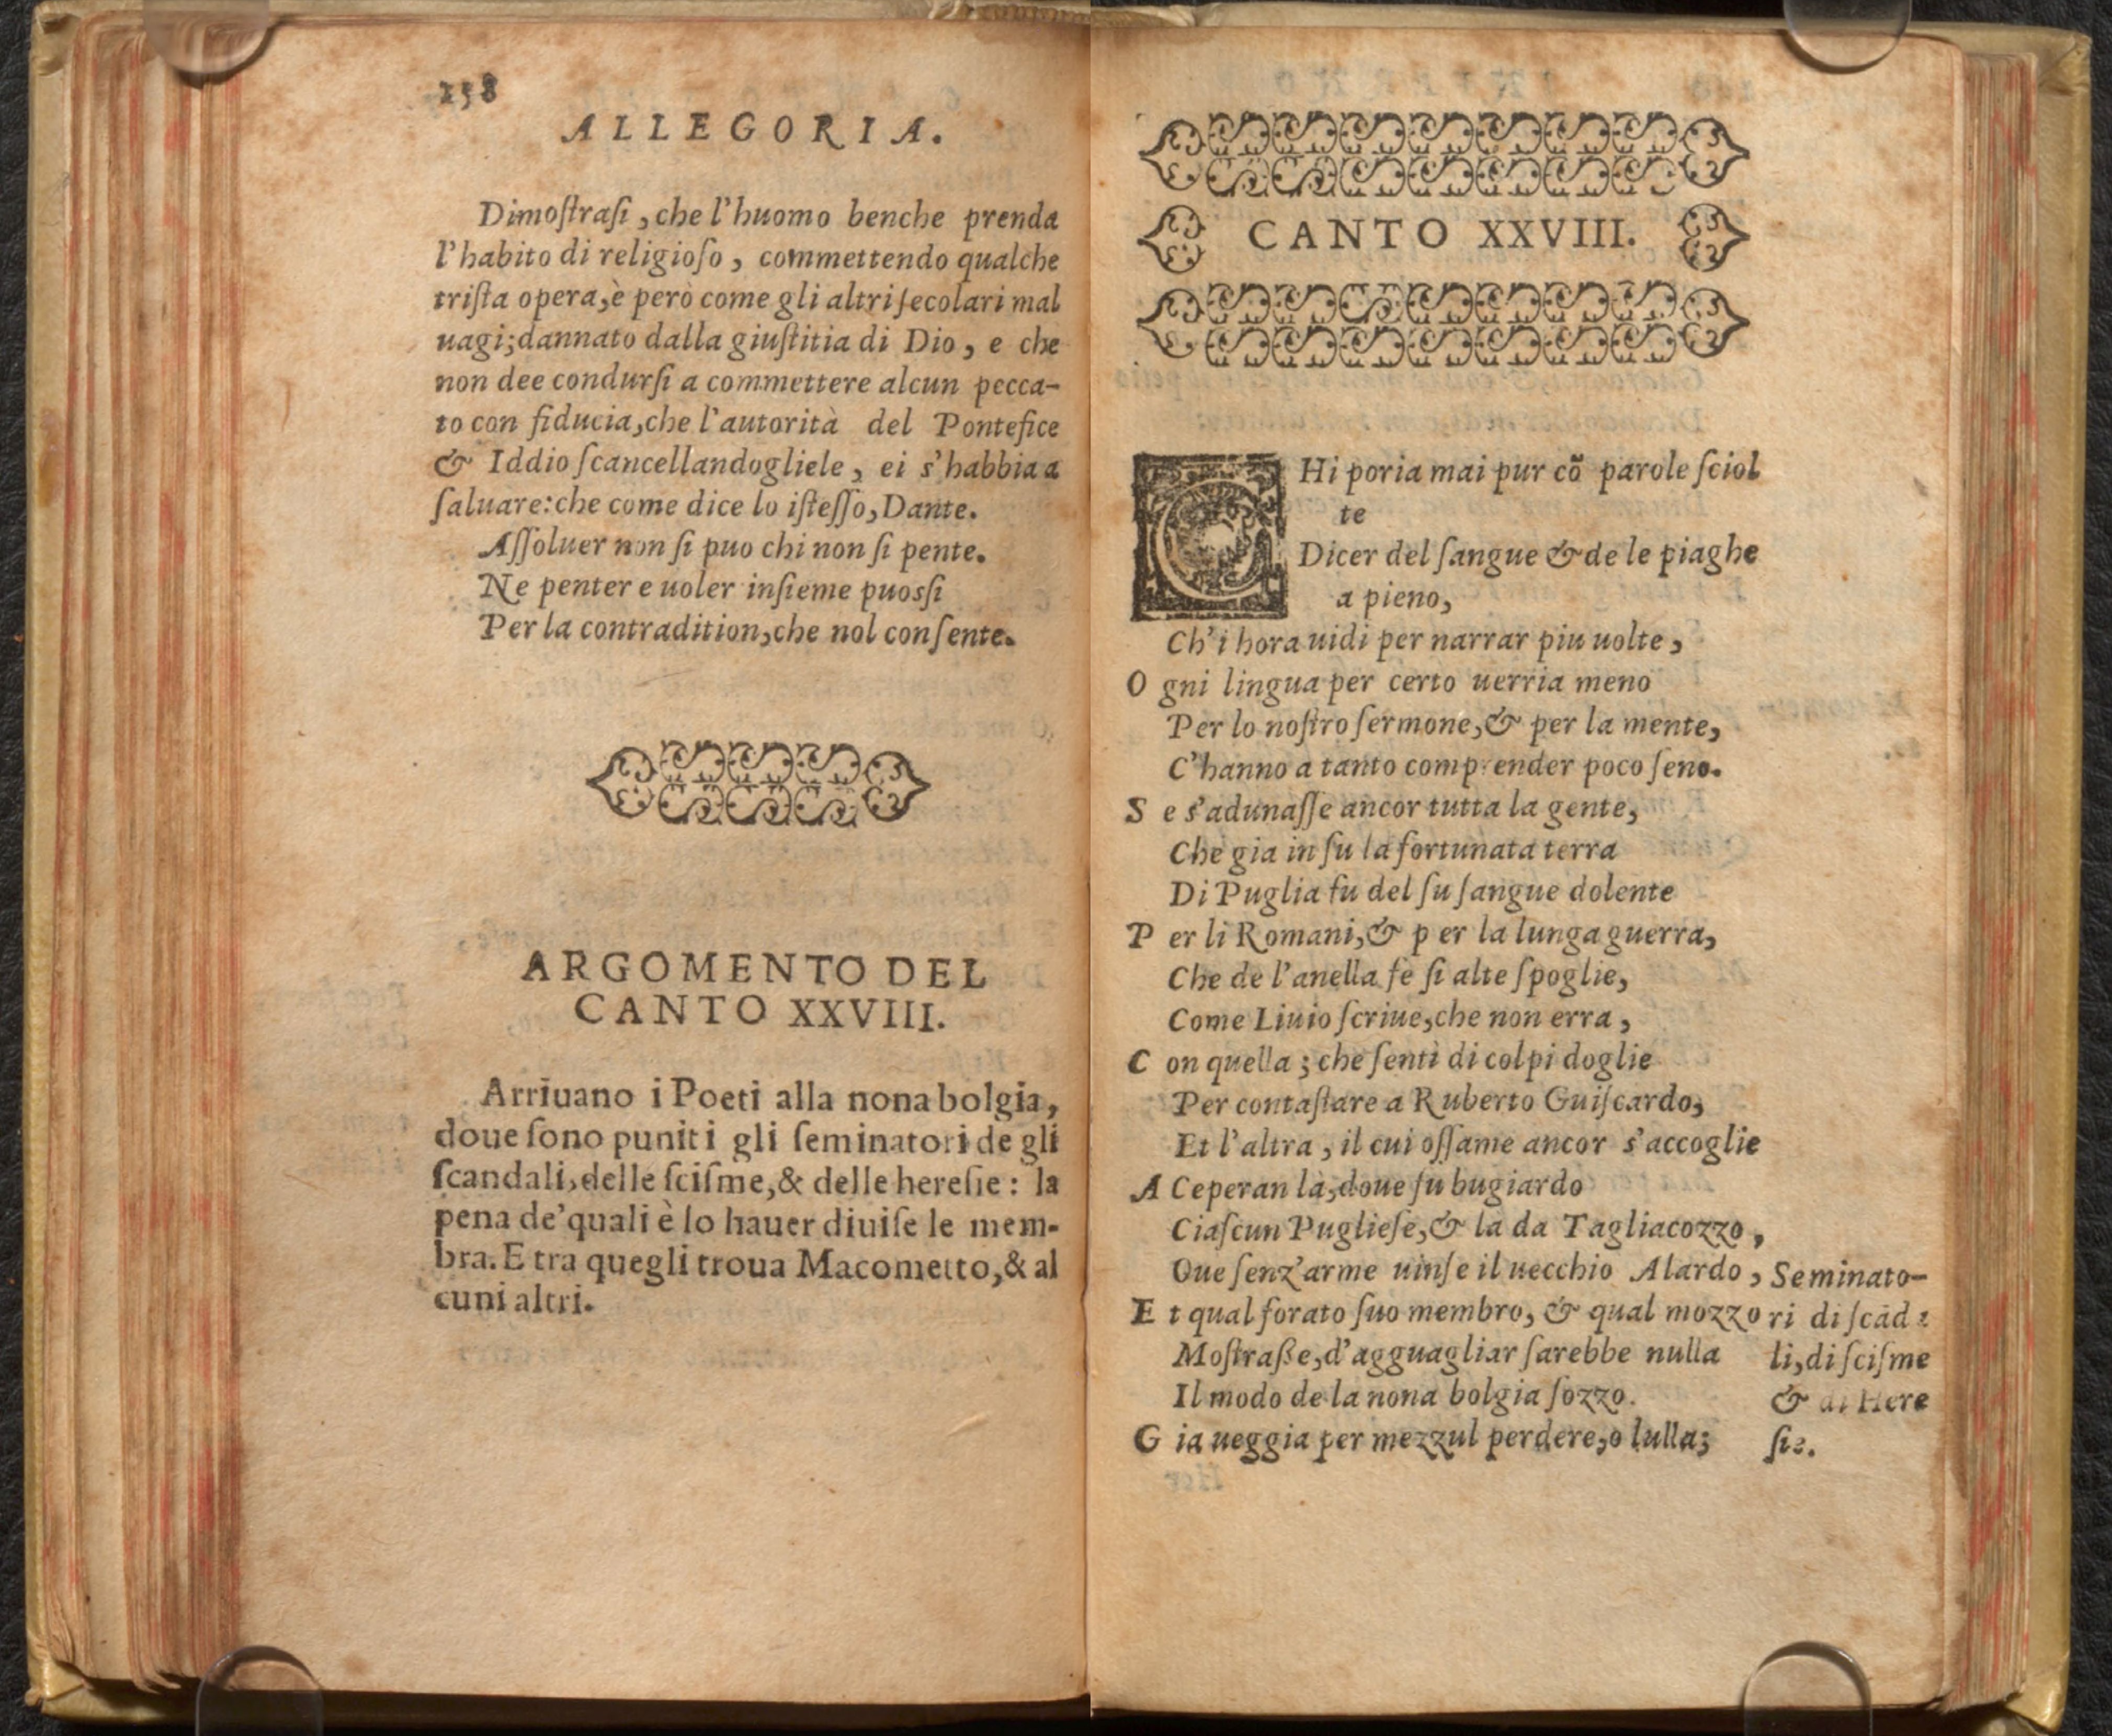 158
ALLEGORIA.
Dimoſtraſi, che l'huomo benche prenda
l'habito di religioſo, commettendo qualche
triſta opera, è però come gli altri ſecolari mal
uagi; dannato dalla giuſtitia di Dio, e che
non dee condurſi a commettere alcun pecca-
to con fiducia, che l'autorità del Pontefice
& Iddio ſcancellandogliele, ei s'habbia a
ſaluare: che come dice lo iſteſſo, Dante.
Aſſoluer non ſi puo chi non ſi pente.
Ne penter e uoler inſieme puosſi
Per la contradition, che nol conſente.
ARGOMENTO DEL
CANTO XXVIII.
Arriuano i Poeti alla nona bolgia,
doue ſono puniti gli ſeminatori de gli
ſcandali, delle ſciſme, & delle hereſie: la
pena de' quali è lo hauer diuiſe le mem-
bra. E tra quegli troua Macometto, & al
cuni altri.
CANTO XXVIII.
CHi poria mai pur cō parole ſciol
te
Dicer del ſangue & de le piaghe
a pieno,
Ch'i hora uidi per narrar piu uolte,
O gni lingua per certo uerria meno
Per lo noſtro ſermone, & per la mente,
C'hanno a tanto comprender poco ſeno.
S e s'adunaſſe ancor tutta la gente,
Che gia in ſu la fortunata terra
Di Puglia fu del ſu ſangue dolente
P er li Romani, & p er la lunga guerra,
Che de l'anella fe ſi alte ſpoglie,
Come Liuio ſcriue, che non erra,
C on quella; che ſentì di colpi doglie
Per contaſtare a Ruberto Guiſcardo,
Et l'altra, il cui oſſame ancor s'accoglie
A Ceperan là, doue fu bugiardo
Ciaſcun Puglieſe, & la da Tagliacozzo,
Oue ſenz'arme uinſe il uecchio Alardo,
E t qual forato ſuo membro, & qual mozzo
Moſtraße, d'agguagliar ſarebbe nulla
Il modo de la nona bolgia ſozzo.
G ia ueggia per mezzul perdere, o lulla;
Seminato-
ri di ſcād a
li, di ſciſme
& di Here
ſie.